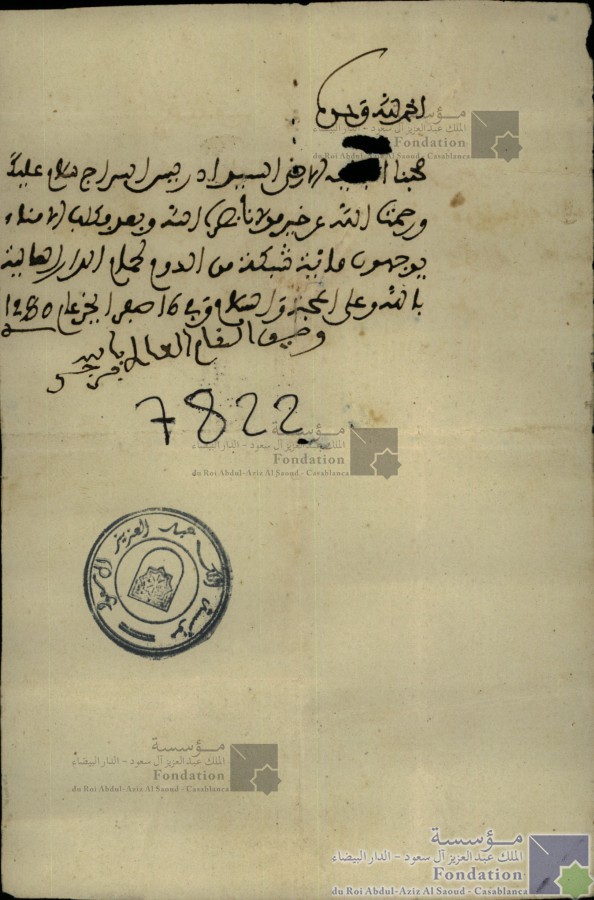 الحمد لله وحده
محبنا الارضى السيد ادريس السراج سلام عليك
ورحمة الله عن خير مولانا نصره الله وبعد فكلف الامناء
يوجهون مائة شبكة من الدوم لمحل الدار العالية
بالله وعلى المحبة والسلام وفي 16 صفر الخير عام 1280
وصيف المقام العالي بالله
7822
مؤسسة الملك عبد العزيز آل سعود
مؤسسة
الملك عبد العزيز آل سعود - الدار البيضاء
Fondation
du Roi Abdul-Aziz Al Saoud - Casablanca
مؤسسة
الملك عبد العزيز آل سعود - الدار البيضاء
Fondation
du Roi Abdul-Aziz Al Saoud - Casablanca
مؤسسة
الملك عبد العزيز آل سعود - الدار البيضاء
Fondation
du Roi Abdul-Aziz Al Saoud - Casablanca
مؤسسة
الملك عبد العزيز آل سعود - الدار البيضاء
Fondation
du Roi Abdul-Aziz Al Saoud - Casablanca